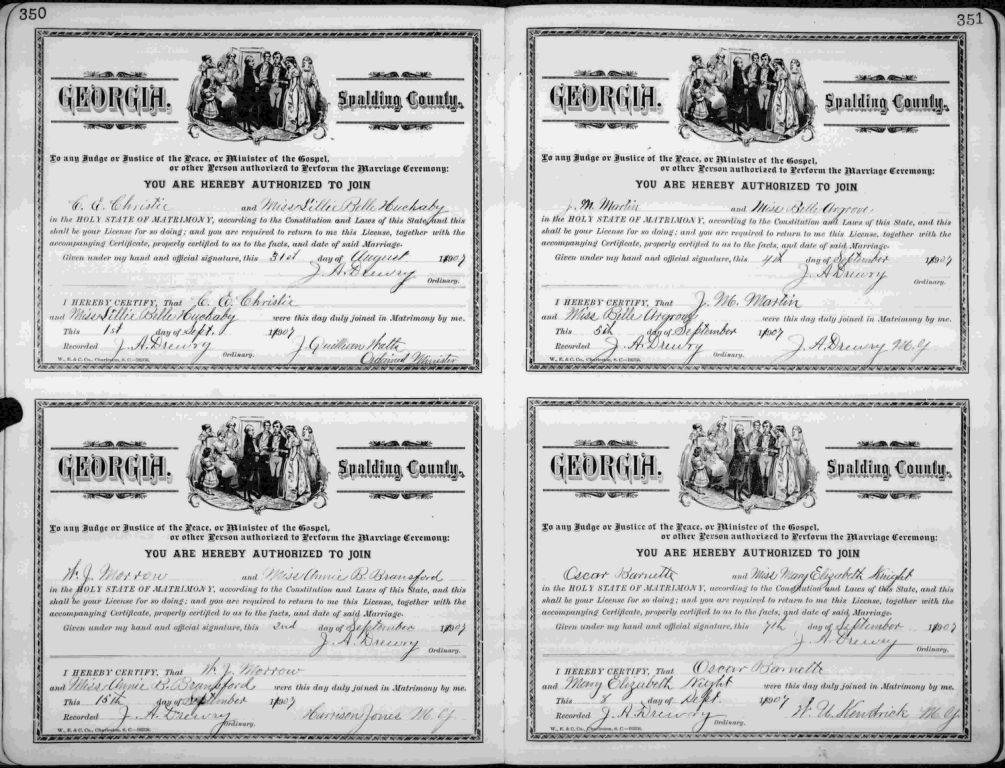 350
GEORGIA. Spalding County.
To any Judge or Justice of the Peace, or Minister of the Gospel,
or other Person authorized to Perform the Marriage Ceremony:
YOU ARE HEREBY AUTHORIZED TO JOIN
C. E. Christie and Miss Lillie Belle Huckaby
in the HOLY STATE OF MATRIMONY, according to the Constitution and Laws of this State, and this
shall be your License for so doing; and you are required to return to me this License, together with the
accompanying Certificate, properly certified as to the facts, and date of said Marriage.
Given under my hand and official signature, this 31st day of August 1907
J. A. Drewry
Ordinary.
I HEREBY CERTIFY, That C. E. Christie
and Miss Lillie Belle Huckaby were this day duly joined in Matrimony by me.
This 1st day of Sept. 1907
Recorded J. A. Drewry J. Quillian
Ordinary. Ordained Minister
W., E. & C. Co., Charleston, S. C.
GEORGIA. Spalding County.
To any Judge or Justice of the Peace, or Minister of the Gospel,
or other Person authorized to Perform the Marriage Ceremony:
YOU ARE HEREBY AUTHORIZED TO JOIN
W. J. Morrow and Miss Annie B. Bransford
in the HOLY STATE OF MATRIMONY, according to the Constitution and Laws of this State, and this
shall be your License for so doing; and you are required to return to me this License, together with the
accompanying Certificate, properly certified as to the facts, and date of said Marriage.
Given under my hand and official signature, this 2nd day of September 1907
J. A. Drewry
Ordinary.
I HEREBY CERTIFY, That W. J. Morrow
and Miss Annie B. Bransford were this day duly joined in Matrimony by me.
This 15th day of September 1907
Recorded J. A. Drewry Harrison Jones M. G.
Ordinary.
W., E. & C. Co., Charleston, S. C.
351
GEORGIA. Spalding County.
To any Judge or Justice of the Peace, or Minister of the Gospel,
or other Person authorized to Perform the Marriage Ceremony:
YOU ARE HEREBY AUTHORIZED TO JOIN
J. M. Martin and Miss Belle Argrove
in the HOLY STATE OF MATRIMONY, according to the Constitution and Laws of this State, and this
shall be your License for so doing; and you are required to return to me this License, together with the
accompanying Certificate, properly certified as to the facts, and date of said Marriage.
Given under my hand and official signature, this 4th day of September 1907
J. A. Drewry
Ordinary.
I HEREBY CERTIFY, That J. M. Martin
and Miss Belle Argrove were this day duly joined in Matrimony by me.
This 5th day of September 1907
Recorded J. A. Drewry J. A. Drewry M. G.
Ordinary.
W., E. & C. Co., Charleston, S. C.
GEORGIA. Spalding County.
To any Judge or Justice of the Peace, or Minister of the Gospel,
or other Person authorized to Perform the Marriage Ceremony:
YOU ARE HEREBY AUTHORIZED TO JOIN
Oscar Barnette and Miss Mary Elizabeth Knight
in the HOLY STATE OF MATRIMONY, according to the Constitution and Laws of this State, and this
shall be your License for so doing; and you are required to return to me this License, together with the
accompanying Certificate, properly certified as to the facts, and date of said Marriage.
Given under my hand and official signature, this 7th day of September 1907
J. A. Drewry
Ordinary.
I HEREBY CERTIFY, That Oscar Barnette
and Mary Elizabeth were this day duly joined in Matrimony by me.
This 8 day of Sept. 1907
Recorded J. A. Drewry W. U. Kendrick M. G.
Ordinary.
W., E. & C. Co., Charleston, S. C.